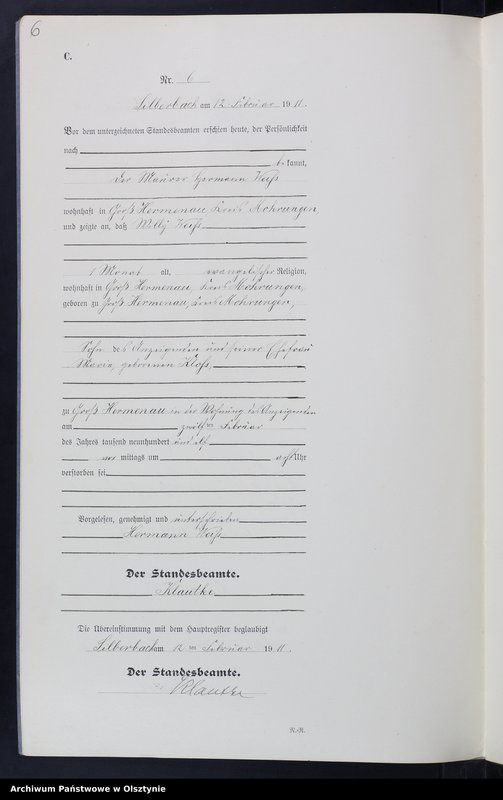 6
C.
Nr. 6
Silberbach am 12 Februar 1911.
Vor dem unterzeichneten Standesbeamten erschien heute, der Persönlichkeit
nach
be kannt,
der Maurer Hermann Weiß
wohnhaft in Groß Hermenau, Kreis Mohrungen,
und zeigte an, daß Willy Weiß
1 Monat alt, evangelischer Religion,
wohnhaft in Groß Hermenau, Kreis Mohrungen,
geboren zu Groß Hermenau, Kreis Mohrungen,
Sohn des Anzeigenden und seiner Ehefrau
Maria, geborenen Klaß,
zu Groß Hermenau in der Wohnung des Anzeigenden
am zwölften Februar
des Jahres tausend neunhundert und elf
vor mittags um acht Uhr
verstorben sei
Vorgelesen, genehmigt und unterschrieben
Hermann Weiß
Der Standesbeamte.
Klautke
Die Übereinstimmung mit dem Hauptregister beglaubigt
Silberbach am 12 ten Februar 1911.
Der Standesbeamte.
Klautke
R.-R.
Archiwum Państwowe w Olsztynie